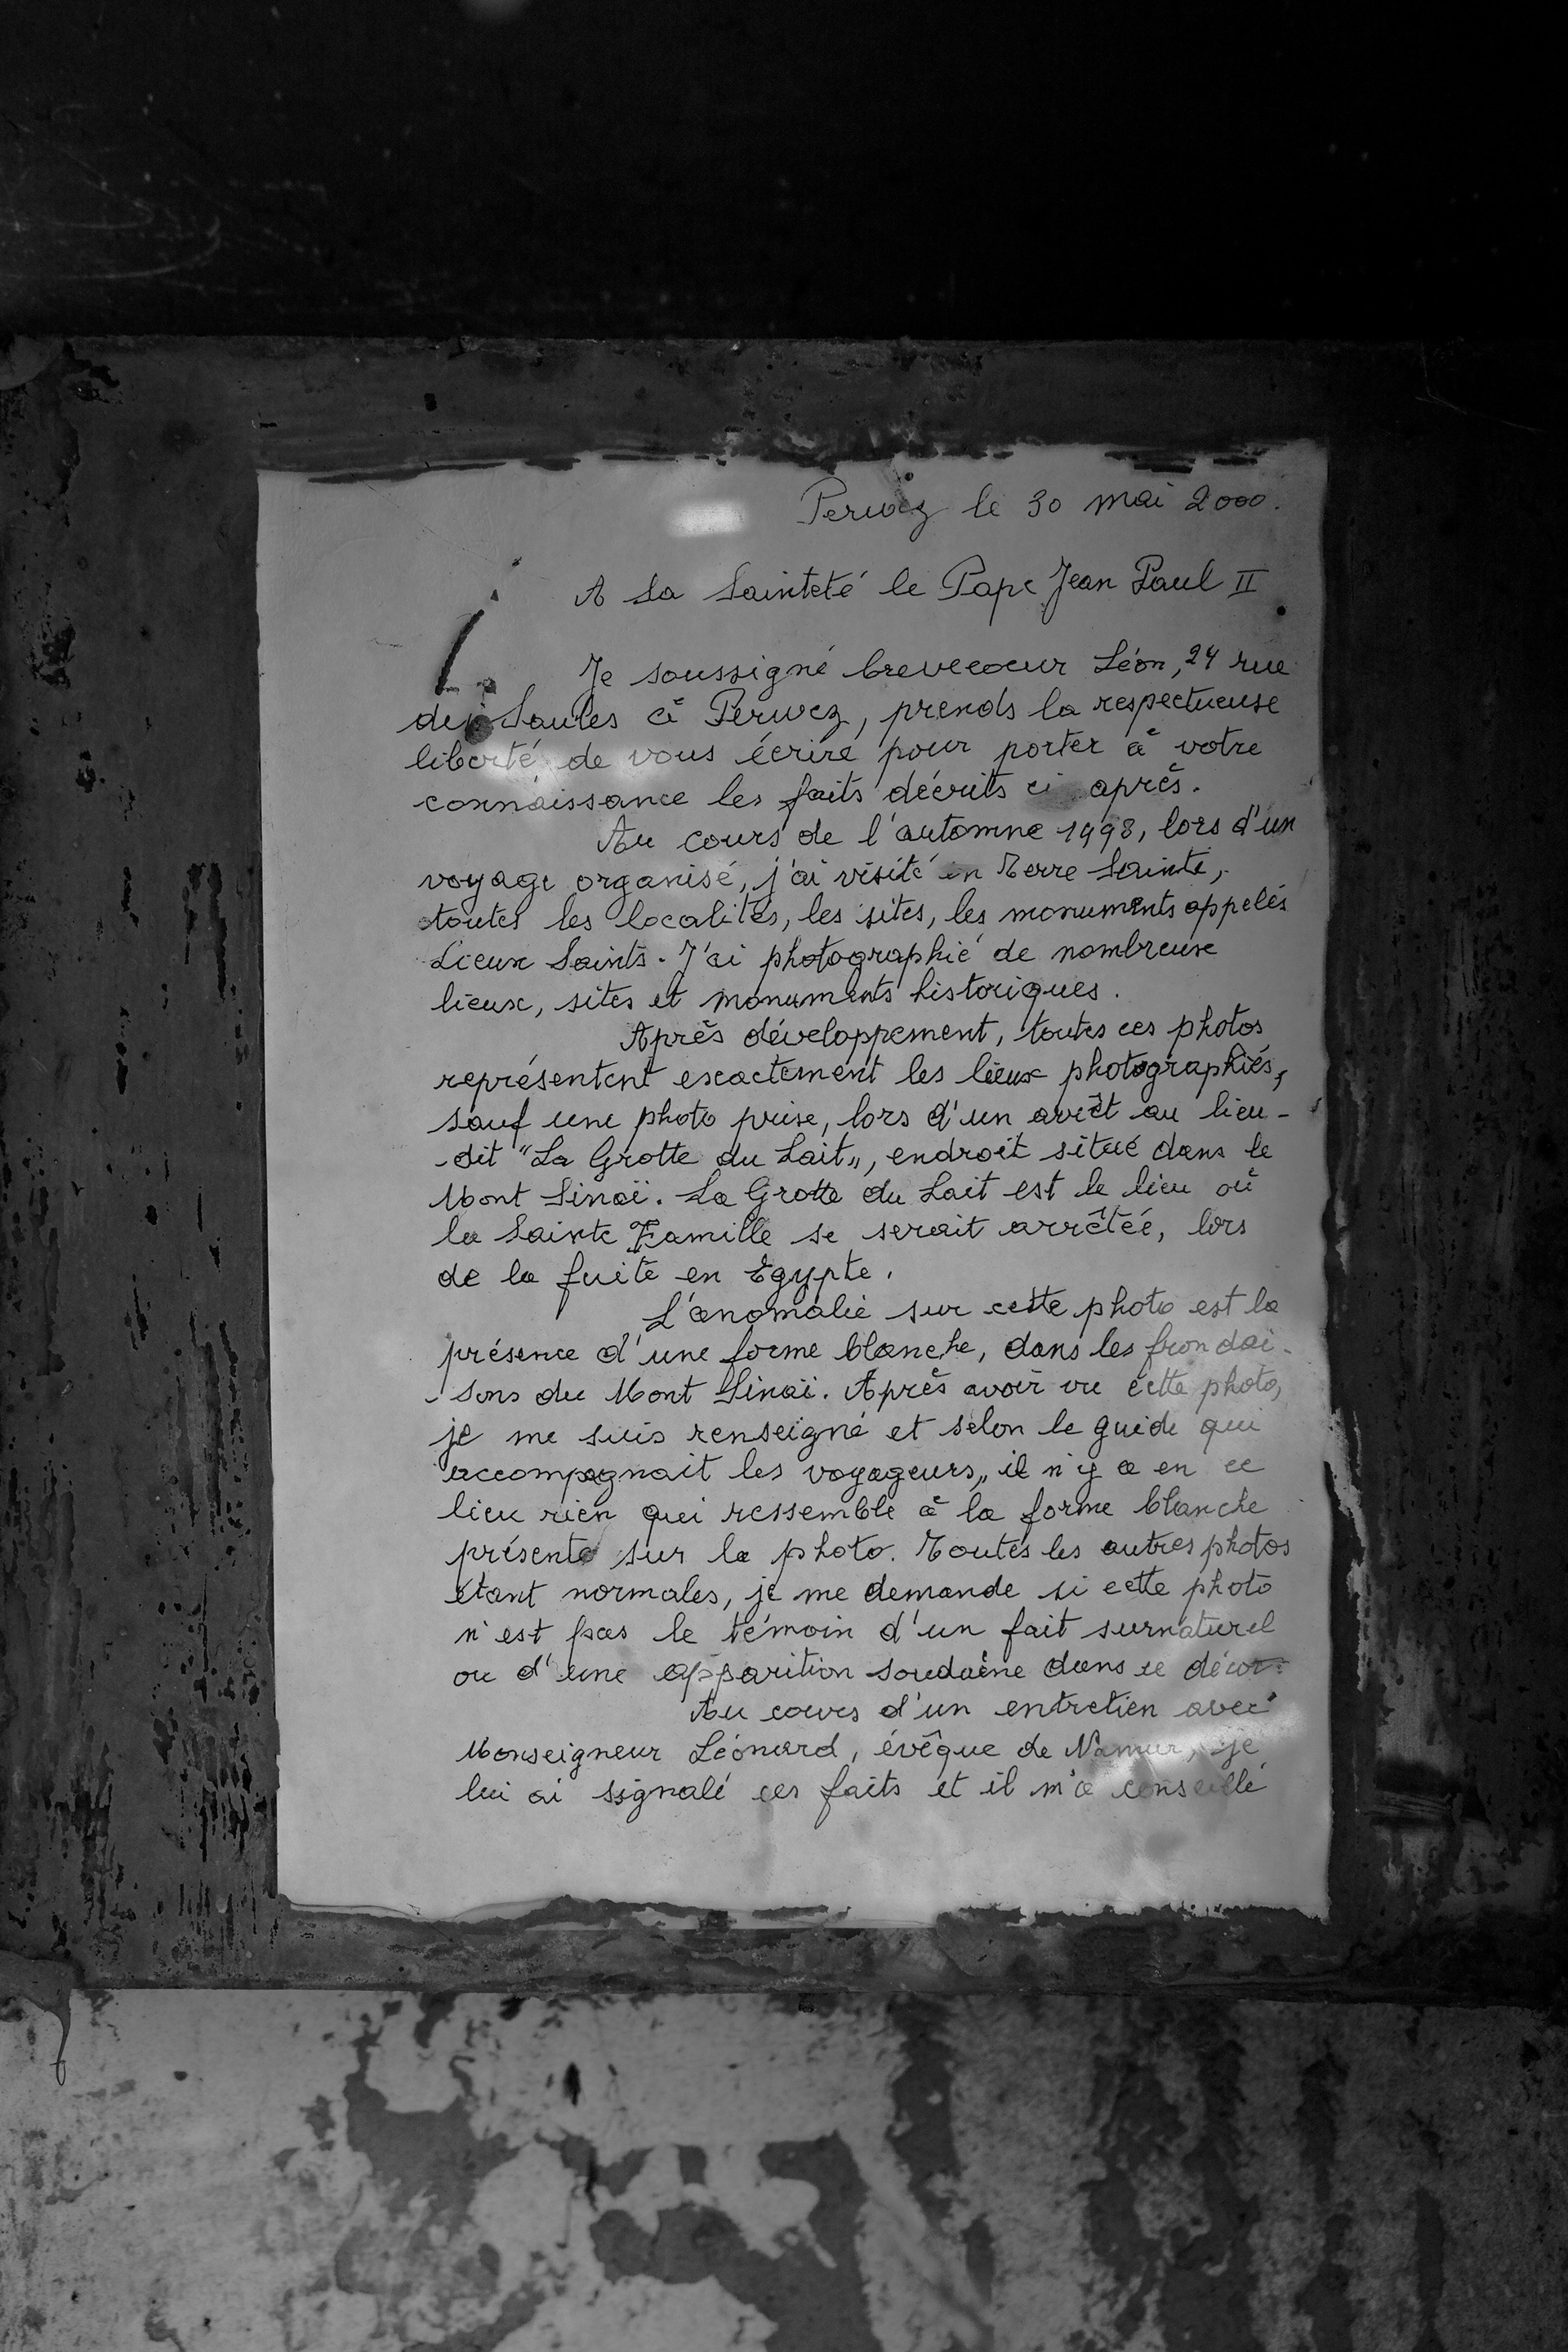 Perwez le 30 mai 2000.
A Sa Sainteté le Pape Jean Paul II
Je soussigné Crevecoeur Léon, 24 rue
des Saules à Perwez, prends la respectueuse
liberté de vous écrire pour porter à votre
connaissance les faits décrits ci après.
Au cours de l'automne 1998, lors d'un
voyage organisé, j'ai visité en Terre Sainte,
toutes les localités, les sites, les monuments appelés
Lieux Saints. J'ai photographié de nombreux
lieux, sites et monuments historiques.
Après développement, toutes ces photos
représentent exactement les lieux photographiés,
sauf une photo prise, lors d'un arrêt au lieu-
-dit "La Grotte du Lait", endroit situé dans le
Mont Sinaï. La Grotte du Lait est le lieu où
la Sainte Famille se serait arrêtée, lors
de la fuite en Egypte.
L'anomalie sur cette photo est la
présence d'une forme blanche, dans les frondai-
-sons du Mont Sinaï. Après avoir vu cette photo,
je me suis renseigné et selon le guide qui
accompagnait les voyageurs, il n'y a en ce
lieu rien qui ressemble à la forme blanche
présente sur la photo. Toutes les autres photos
étant normales, je me demande si cette photo
n'est pas le témoin d'un fait surnaturel
ou d'une apparition soudaine dans ce décor.
Au cours d'un entretien avec
Monseigneur Léonard, évêque de Namur, je
lui ai signalé ces faits et il m'a conseillé